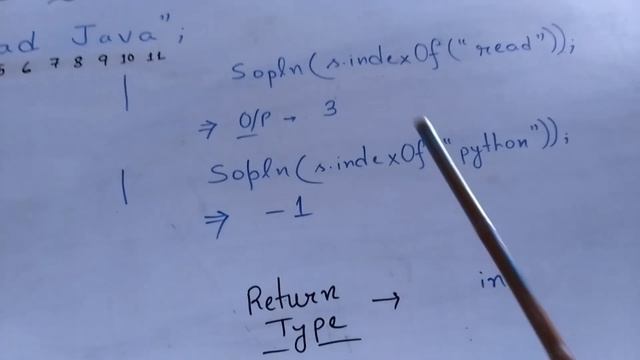 ad Java";
5 6 7 8 9 10 11
Sopln(s.indexOf("read"));
⇒ O/P → 3
Sopln(s.indexOf("python"));
⇒ -1
Return → in
Type